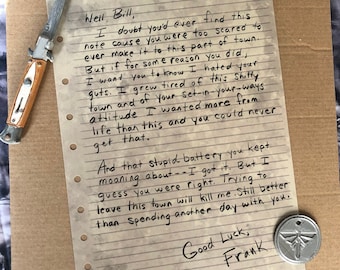 Well Bill,
I doubt you'd ever find this
note cause you were too scared to
ever make it to this part of town
But if for some reason you did,
I want you to know I hated your
guts. I grew tired of this shitty
town and of your set-in-your-ways
attitude I wanted more from
life than this and you could never
get that.
And that stupid battery you kept
moaning about--- I got it. But I
guess you were right Trying to
leave this town will kill me Still better
than spending another day with you.
Good Luck,
Frank